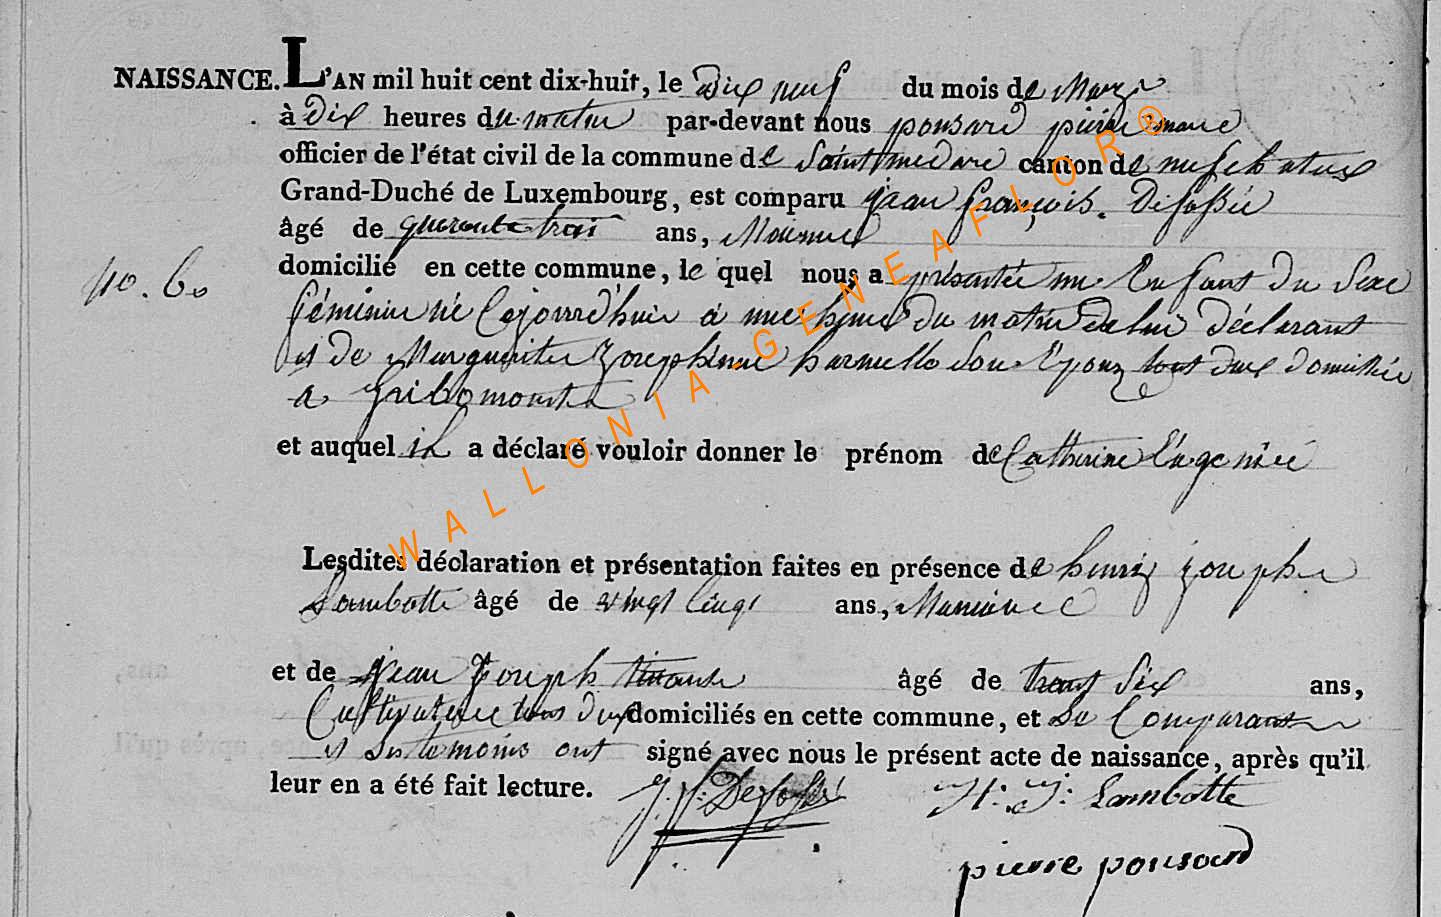 NAISSANCE. L'AN mil huit cent dix-huit, le Dix neuf du mois de Mars
à Dix heures du matin par-devant nous ponsard pierre marie
officier de l'état civil de la commune de Saint medard canton de neufchateau
Grand-Duché de Luxembourg, est comparu jean françois Defossé
âgé de quarente trois ans,
domicilié en cette commune, le quel nous a présentée un Enfant Du Sexe
féminin né Cejourd'huis à une heure du matin de lui déclarant
et De Marguerite Josephinne Son Epouz tous deux domiciliée
a Gribomont
No. 60
et auquel il a déclaré vouloir donner le prénom de Catherine Eugenie
Lesdites déclaration et présentation faites en présence de henriy joseph
Lambotte âgé de vingt Cinq ans,
et de jean Joseph âgé de trent Six ans,
Cultivateur tous deux domiciliés en cette commune, et Le Comparant
et Ses temoins ont signé avec nous le présent acte de naissance, après qu'il
leur en a été fait lecture. J. f: Defossé H: J: Lambotte
pierre ponsard
WALLONIA-GENEAFLOR®